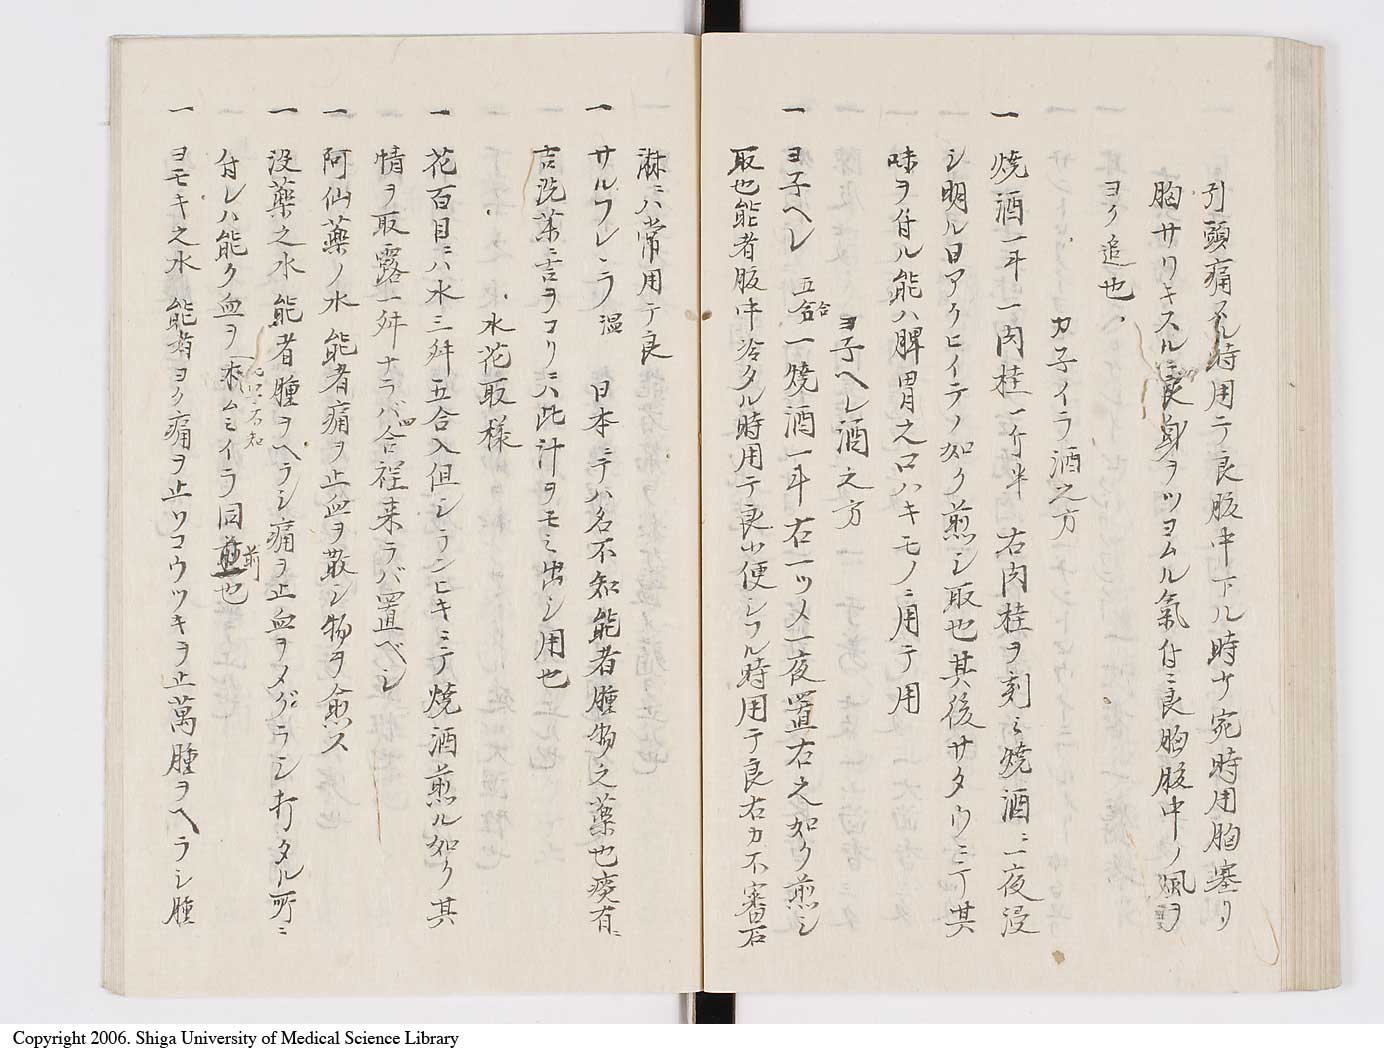 引頭痛スル時用テ良服中下ル時サ宛時用胸塞リ
胸サリキスルニ良身ヲツヨムル氣付ニ良胸服中ノ風ヲ
ヨク追也、
カ子イラ酒之方
一 焼酒一斗 一肉桂一斤半 右肉桂ヲ刻ミ焼酒ニ一夜浸
シ明ル日アクヒイテノ如ク煎シ取也其後サタウニテ其
味ヲ付ル能ハ脾胃之口ハキモノニ用テ用
ヨ子ヘレ酒之方
一 ヨ子ヘレ 五合 一焼酒一斗 右一ツメ一夜置右之如ク煎シ
取也能者服中冷タル時用テ良小便シフル時用テ良右カ不審石
淋ニハ常用テ良
一 サルフレニラ 温 日本ニテハ名不知能者腫物之薬也痰有ニ
言洗薬ニ言ヲコリニハ此汁ヲモミ出シ用也
水花取様
一 花百目ニハ水三舛五合入但シランヒキミテ焼酒煎ル如ク其
情ヲ取露一舛ナラバ四合程来ラバ置ベシ
一 阿仙薬ノ水 能者痛ヲ止血ヲ散シ物ヲ愈ス
一 没薬之水 能者腫ヲヘラシ痛ヲ止血ヲメグラシ打タル所ニ
付レハ能ク血ヲ ムミイラ同前煎也
一 ヨモキ之水 能者ヨク痛ヲ止ツコウツキヲ止萬腫ヲヘラシ腫
Copyright 2006. Shiga University of Medical Science Library